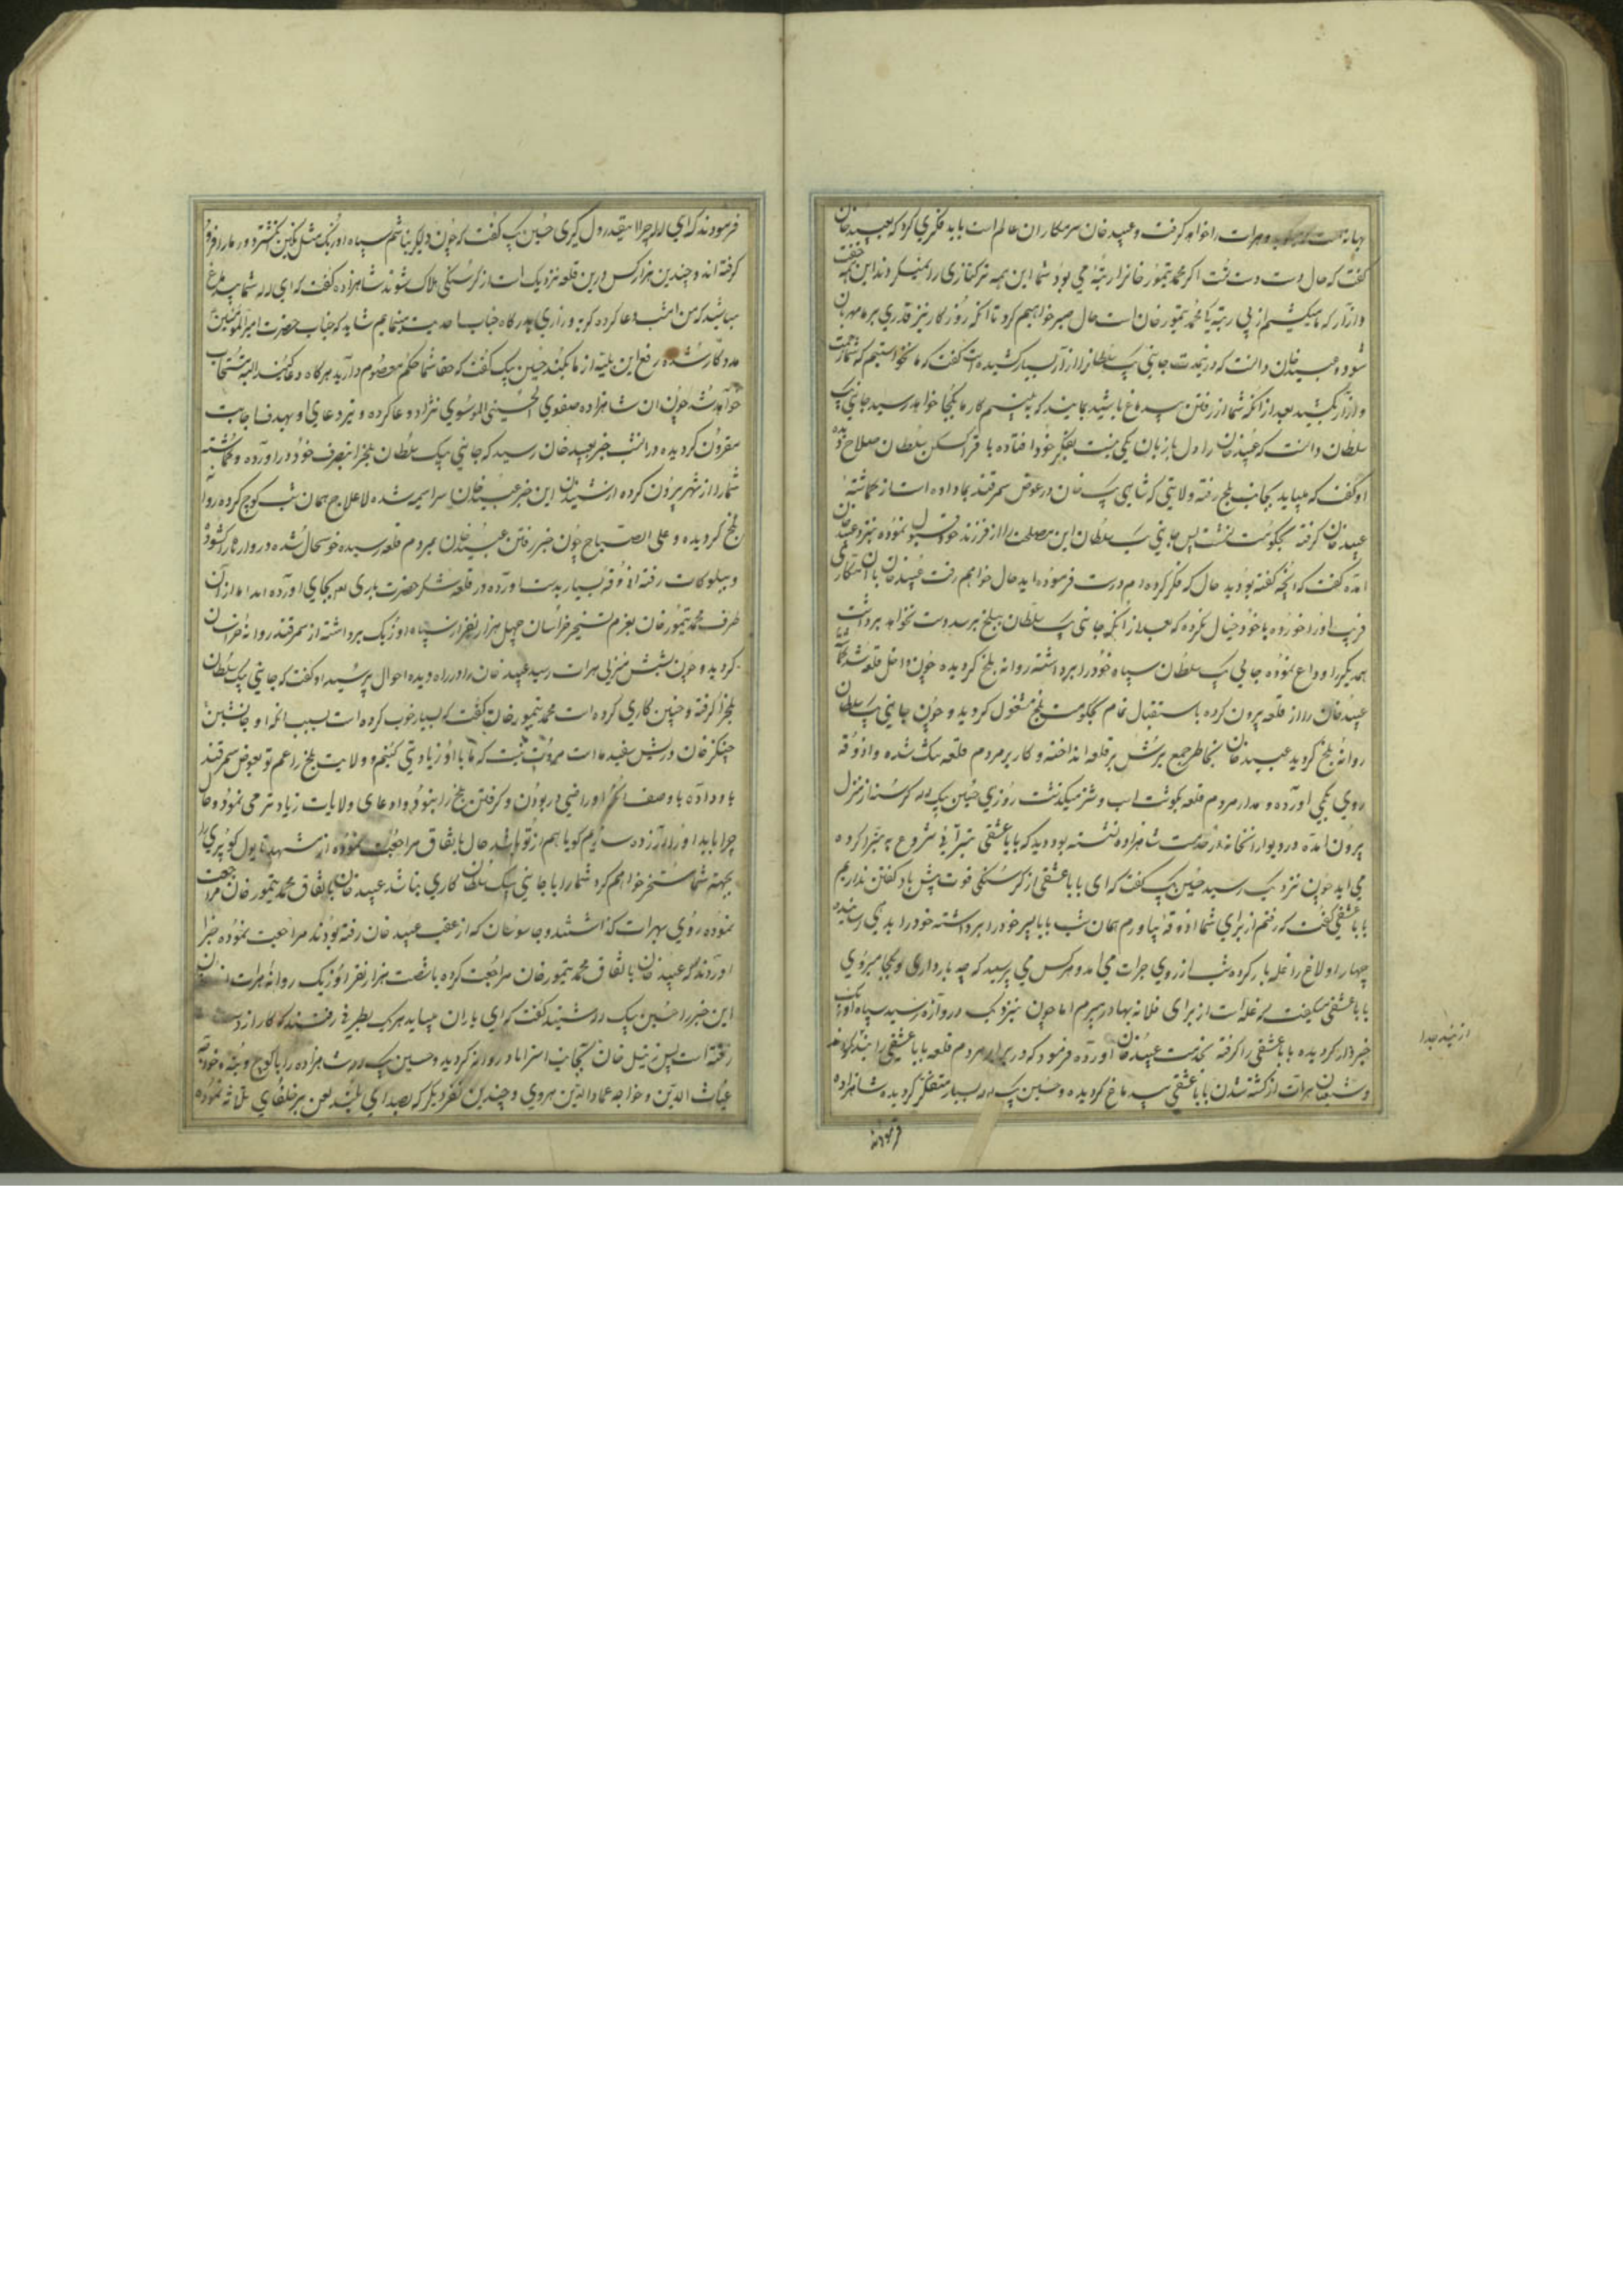 و هرات را خواهد گرفت و عبید خان سرمکاران عالم است باید فکری کرد که عبید خان
گفت که حال دست دست تست اگر محمد تیمور خانرا رتبه می بود شما این همه ترکتازی را نمیکردند این همه خفت
و ازار که ما میکشیم از بی رتبه کی محمد تیمور خان است حال صبر خواهیم کرد تا انکه روزکار نیز قدری بر ما مهربان
شود و عبید خان دانست که در خدمت جانی بیک سلطان را ازار بسیار کشیده است گفت که ما نخواستیم که شما زحمت
و ازار بکشید بعد از انکه شما از رفتن بیدماغ باشید بمانید که ببینیم کار ما بکجا خواهد رسید جانی بیک
سلطان دانست که عبید خان را دل با زبان یکی نیست بفکر خود افتاده با قرا کسکن سلطان صلاح دیده
او گفت که میباید بجانب بلخ رفته ولایتی که شاهی بیک خان در عوض سمرقند بما داده است از گماشته
عبید خان گرفته بحکومت نشست پس جانی بیک سلطان این مصلحت را از فرزند خود قبول نموده بنزد عبید خان
امده گفت که انچه گفته بودید حال که فکر کرده ام درست فرموده اید حال خواهم رفت عبید خان با ان مکاری
فریب او را خورده با خود خیال نکرده که بعد از انکه جانی بیک سلطان ببلخ برسد دست نخواهد برداشت
همدیگر را وداع نموده جانی بیک سلطان سپاه خود را برداشته روانه بلخ گردیده چون داخل قلعه شد گماشته
عبید خان را از قلعه بیرون کرده باستقبال تمام بحکومت بلخ مشغول گردید و چون جانی بیک سلطان
روانه بلخ گردید عبید خان بخاطر جمع یرش بر قلعه انداخته و کار بر مردم قلعه تنک شده و اذوقه
روی بکمی اورده و مدار مردم قلعه بگوشت اسب و شتر میگذشت روزی حسین بیک لله گرسنه از منزل
بیرون امده در دیوارانخانه در خدمت شاهزاده نشسته بود دید که بابا عشقی تبرائی شروع به تبرا کرده
می اید چون نزدیک رسید حسین بیک گفت که ای بابا عشقی از گرسنگی قوت پیش باد گفتن نداریم
بابا عشقی گفت که رفتم از برای شما اذوقه بیاورم همان شب بابا پسر خود را برداشته خود را بدهی رسانیده
چهار اولاغ را غله بار کرده شب از روی جرات می امد و هر کس می پرسید که چه بار داری و بکجا میروی
بابا عشقی میگفت که غله است از برای فلانه بهادر میبرم اما چون بنزدیک دروازه رسید سپاه اوزبک
خبردار گردیده بابا عشقی را گرفته بخدمت عبید خان اورده فرمود که در برابر مردم قلعه بابا عشقی را بند کردند
و شیعیان هرات از کشته شدن بابا عشقی بیدماغ گردیده و حسین بیک لله بسیار متفکر گردیده شاهزاده
فرمودند
فرمودند که ای لله چرا اینقدر دل گیری حسین بیک گفت که چون دلگیر نباشم سپاه اوزبک مثل نگین انگشتر دور ما را فرو
گرفته اند و چندین هزار کس درین قلعه نزدیک است از گرسنگی هلاک شوند شاهزاده گفت که ای لله شما بیدماغ
مباشید که من امشب دعا کرده گریه و زاری بدرگاه جناب احدیت مینمایم شاید که جناب حضرت امیرالمؤمنین
مددکار شده رفع این بلیه از ما بکند حسین بیک گفت که حقا شما حکم معصوم دارید هرگاه دعا کنید البته مستجاب
خواهد شد چون ان شاهزاده صفوی الحسینی الموسوی نژاد دعا کرده و تیر دعای او بهدف اجابت
مقرون گردیده در انشب خبر بعبید خان رسید که جانی بیک سلطان بلخ را بتصرف خود در اورده و گماشته
شما را از شهر بیرون کرده از شنیدن این خبر عبید خان سراسیمه شده لاعلاج همان شب کوچ کرده روانه
بلخ گردیده و علی الصباح چون خبر رفتن عبید خان بمردم قلعه رسیده خوشحال شده دروازها را گشوده
و ببلوکات رفته اذوقه بسیار بدست اورده در قلعه شکر حضرت باری تعالی بجای اورده اند اما از ان
طرف محمد تیمور خان بعزم تسخیر خراسان چهل هزار نفر از سپاه اوزبک برداشته از سمرقند روانه خراسان
گردید و چون بشش منزلی هرات رسید عبید خان را در راه دیده احوال پرسید او گفت که جانی بیک سلطان
بلخ را گرفته و چنین کاری کرده است محمد تیمور خان گفت که بسیار خوب کرده است بسبب انکه او جانشین
چنگیز خان و ریش سفید ما است مروت نیست که ما با او زیادتی کنیم و ولایت بلخ را عم تو بعوض سمرقند
باو داده با وصف انکه او راضی در بودن و گرفتن بلخ را نبوده و ادعای ولایات زیادتر می نمود و حال
چرا باید او را ازرده سازیم گویا هم از تو باشد حال باتفاق مراجعت نموده از مشهد تا پول کوپری را
بجهة شما مسخر خواهم کرد شما را با جانی بیک سلطان کاری نباشد عبید خان باتفاق محمد تیمور خان مراجعت
نموده روی بهرات گذاشتند و جاسوسان که از عقب عبید خان رفته بودند مراجعت نموده خبر
اوردند که عبید خان باتفاق محمد تیمور خان مراجعت کرده با شصت هزار نفر اوزبک روانه هرات اند
این خبر را حسین بیک لله شنید گفت که ای یاران میباید هر یک بطرفی رفت که کار از دست
رفته است پس زینل خان بجانب استراباد روانه گردید و حسین بیک لله شاهزاده را با کوچ و بنه
غیاث الدین و خواجه عماد الدین هروی و چندین نفر دیگر که بصدای بلند لعن بر خلفای ثلاثه نموده